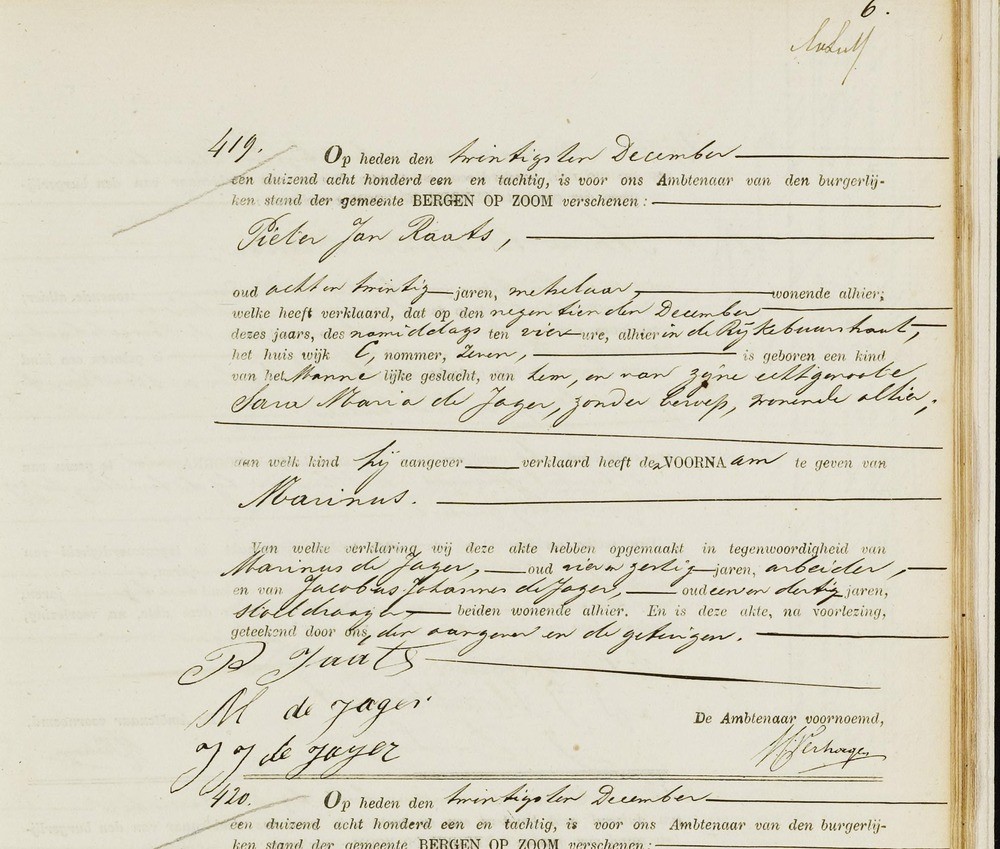 6.
419.
Op heden den twintigsten December
een duizend acht honderd een en tachtig, is voor ons Ambtenaar van den burgerlij-
ken stand der gemeente BERGEN OP ZOOM verschenen:
Pieter Jan Raats,
oud acht en twintig jaren, metselaar, wonende alhier;
welke heeft verklaard, dat op den negentienden December
dezes jaars, des namiddags ten vier ure, alhier in de Rijkebuurstraat,
het huis wijk C, nommer, zeven, is geboren een kind
van het Manne lijke geslacht, van hem, en van zijne echtgenoote
Sara Maria de Jager, zonder beroep, wonende alhier;
aan welk kind hij aangever verklaard heeft den VOORNAam te geven van
Marinus.
Van welke verklaring wij deze akte hebben opgemaakt in tegenwoordigheid van
Marinus de Jager, oud jaren, arbeider,
en van Jacobus Johannes de Jager, oud een en dertig jaren,
beiden wonende alhier. En is deze akte, na voorlezing,
geteekend door ons, den aangever en de getuigen.
P J Raats
M de Jager
De Ambtenaar voornoemd,
J J de Jager
420.
Op heden den twintigsten December
een duizend acht honderd een en tachtig, is voor ons Ambtenaar van den burgerlij-
ken stand der gemeente BERGEN OP ZOOM verschenen: